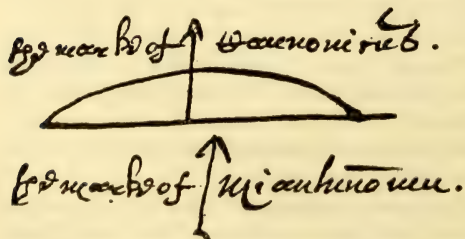 the marke of Caunonicus.
the marke of Miantunomu.